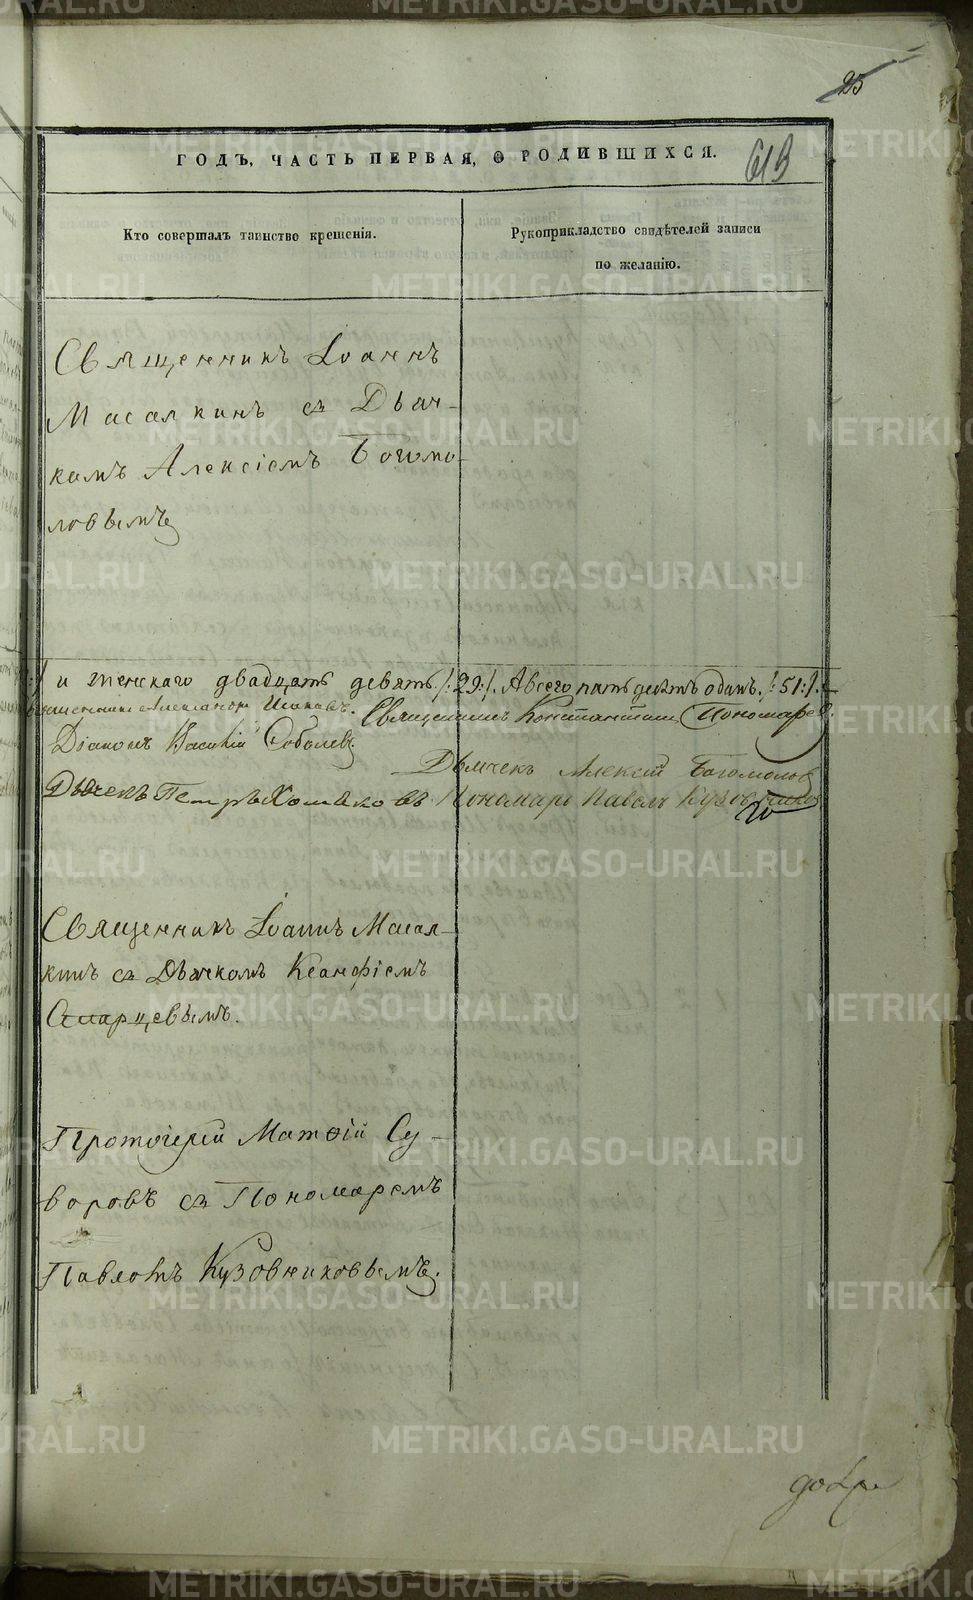 25
ГОДЪ, ЧАСТЬ ПЕРВАЯ, О РОДИВШИХСЯ.
613
Кто совершалъ таинство крещенія.
Рукоприкладство свидѣтелей записи
по желанію.
Священникъ Іоаннъ
Масалкинъ съ Дьяч-
комъ Алексіемъ Богомо-
ловымъ
и женскаго двадцать девять /:29:/. А всего пятьдесятъ одинъ. /:51:/.
Священникъ Александръ
Священникъ Константинъ Пономаревъ.
Діаконъ Василій Соболевъ.
Дьячекъ Алексій Богомоловъ
Дьячекъ Петръ Хомяковъ
Пономарь Павелъ Кузовниковъ
Священникъ Іоаннъ Масал-
кинъ съ Дьячкомъ Ксанфіемъ
Старцевымъ.
Протоіерей Матѳій Су-
воровъ съ Пономаремъ
Павломъ Кузовниковымъ.
METRIKI.GASO-URAL.RU